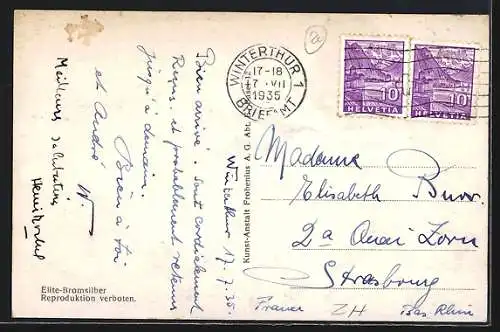 Winterthur 17.7.35.
Bien arrivé. sont cordialement
Reçus. et probablement retenus
jusqu'à demain.
Bien à toi
et André
Meilleures salutations
WINTERTHUR 1
17-18
17. VII
1935
BRIEFAMT
10
HELVETIA
10
HELVETIA
Kunst-Anstalt Frobenius A. G. Abt.
Madame
Elisabeth Burr.
2a Quai Zorn
Strasbourg
France
ZH
Bas Rhin
Elite-Bromsilber
Reproduktion verboten.